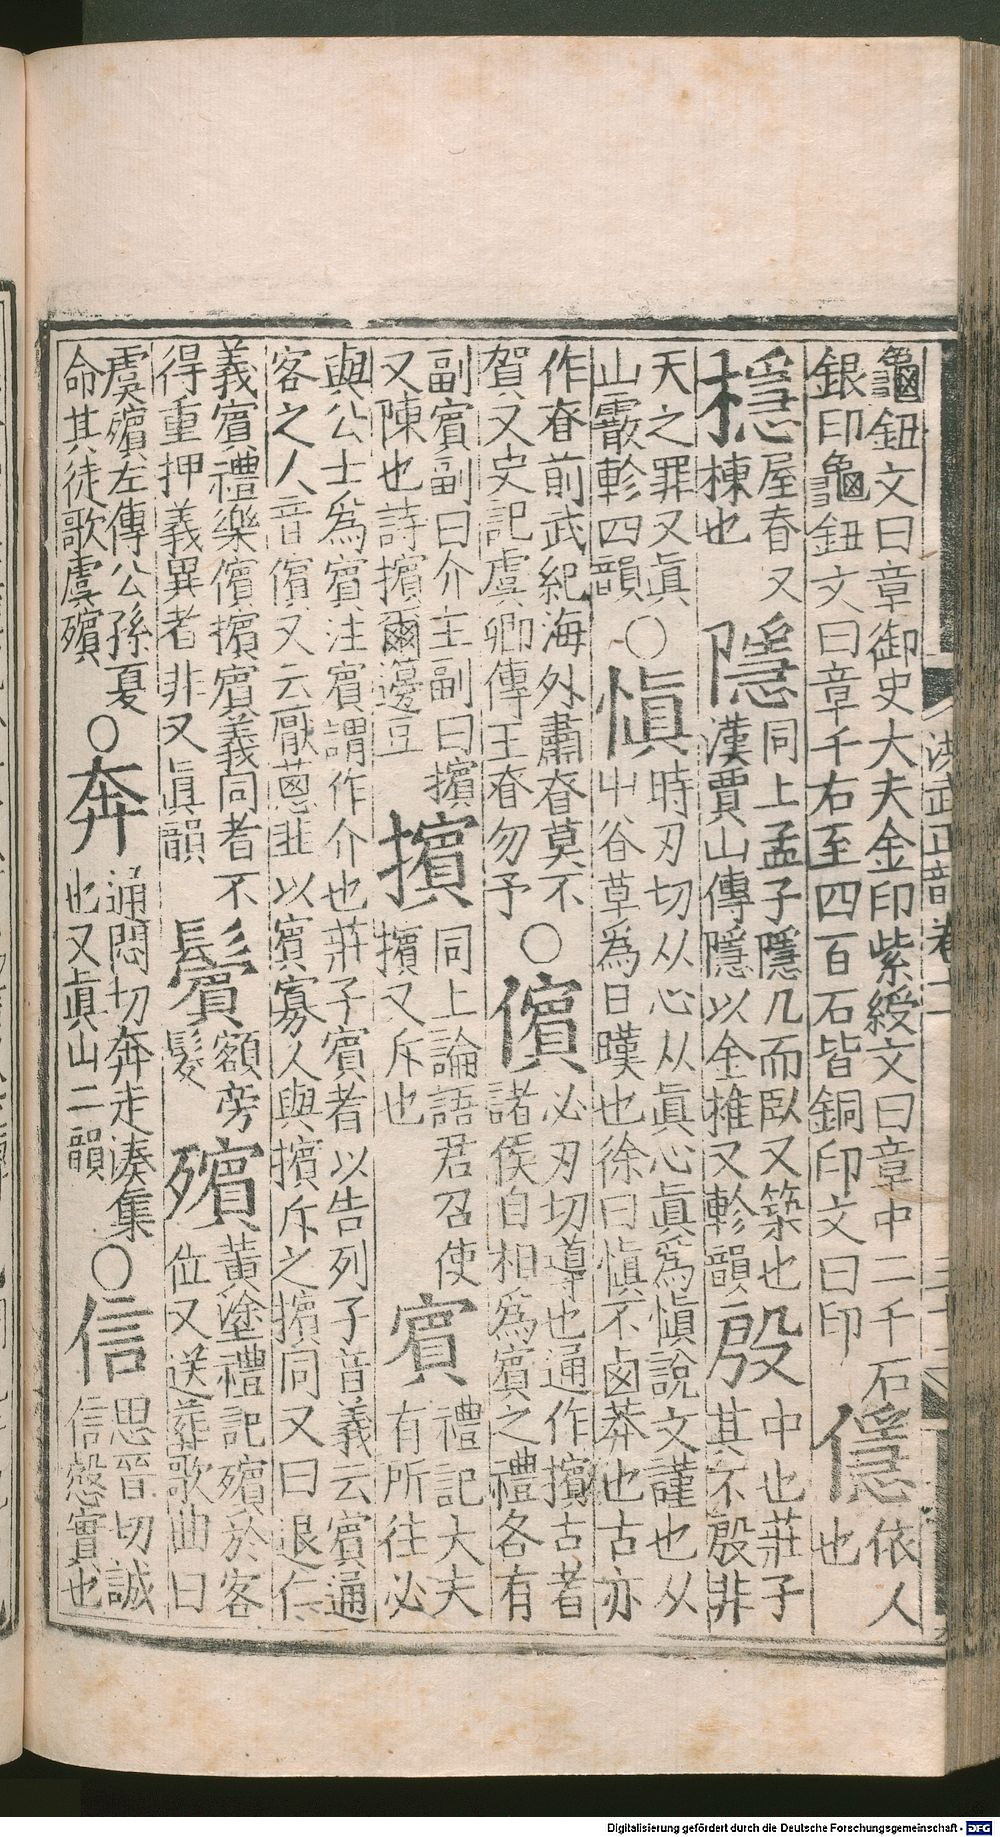 龜鈕文曰章御史大夫金印紫綬文曰章中二千石 㒚依人
銀印龜鈕文曰章千右至四百石皆銅印文曰印 也
檼屋春又 隱同上孟子隱几而臥又築也 殷中也莊子
棟也 漢賈山傳隱以金椎又軫韻 其不殷非
天之罪又眞 ○愼時刃切从心从眞心眞爲愼說文謹也从
山霰軫四韻 屮谷草爲日暵也徐曰愼不鹵莽也古亦
作昚前武紀海外肅昚莫不 ○儐必刃切導也通作擯古者
賀又史記虞卿傳王昚勿予 諸侯自相爲賓之禮各有
副賓副曰介主副曰擯 擯同上論語君召使 賓禮記大夫
又陳也詩擯爾籩豆 擯又斥也 有所往必
與公士爲賓注賓謂作介也莊子賓者以告列子音義云賓通
客之人音儐又云厭蔥韭以賓寡人與擯斥之擯同又曰退仁
義賓禮樂儐擯賓義同者不 鬢額旁 殯黃塗禮記殯於客
得重押義異者非又眞韻 髮 位又送葬歌曲曰
虞殯左傳公孫夏 ○奔通悶切奔走湊集 ○信思晉切誠
命其徒歌虞殯 也又眞山二韻 信慤實也
洪武正韻卷十一
Digitalisierung gefördert durch die Deutsche Forschungsgemeinschaft - DFG